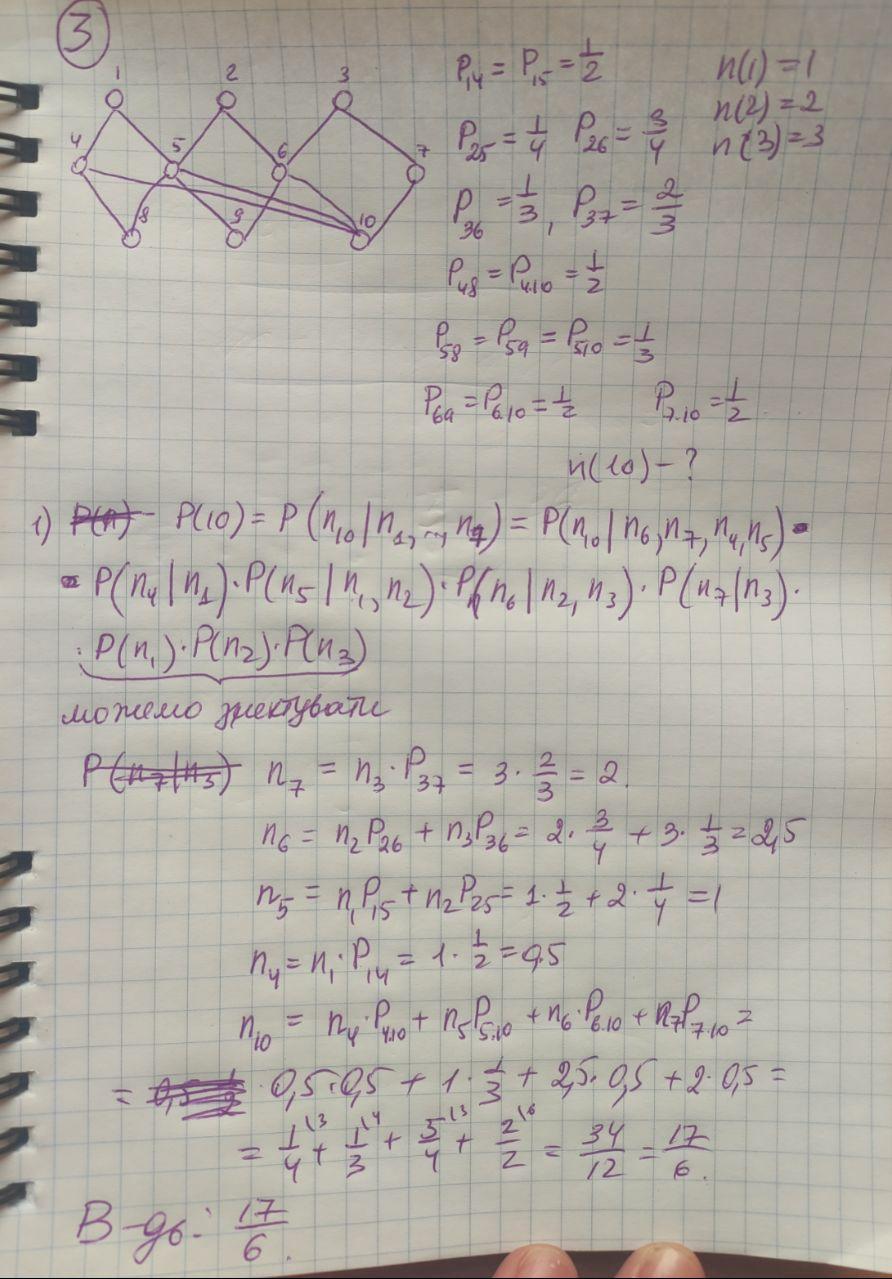 3
1 2 3
4 5 6 7
8 9 10
P₁₄ = P₁₅ = 1/2 n(1) = 1
n(2) = 2
P₂₅ = 1/4 P₂₆ = 3/4 n(3) = 3
P₃₆ = 1/3, P₃₇ = 2/3
P₄₈ = P₄.₁₀ = 1/2
P₅₈ = P₅₉ = P₅₁₀ = 1/3
P₆₉ = P₆.₁₀ = 1/2 P₇.₁₀ = 1/2
n(10) - ?
1) P(10) = P(n₁₀ | n₁, .., n₇) = P(n₁₀ | n₆, n₇, n₄, n₅) ·
· P(n₄ | n₁) · P(n₅ | n₁, n₂) · P(n₆ | n₂, n₃) · P(n₇ | n₃) ·
· P(n₁) · P(n₂) · P(n₃)
можемо
P(n₇ | n₃) n₇ = n₃ · P₃₇ = 3 · 2/3 = 2.
n₆ = n₂P₂₆ + n₃P₃₆ = 2 · 3/4 + 3 · 1/3 = 2,5
n₅ = n₁P₁₅ + n₂P₂₅ = 1 · 1/2 + 2 · 1/4 = 1
n₄ = n₁ · P₁₄ = 1 · 1/2 = 0,5
n₁₀ = n₄ · P₄.₁₀ + n₅P₅.₁₀ + n₆ · P₆.₁₀ + n₇P₇.₁₀ =
= · 0,5 · 0,5 + 1 · 1/3 + 2,5 · 0,5 + 2 · 0,5 =
= 1/4 \3 + 1/3 \4 + 5/4 \3 + 2/2 \6 = 34/12 = 17/6.
В-дь: 17/6.